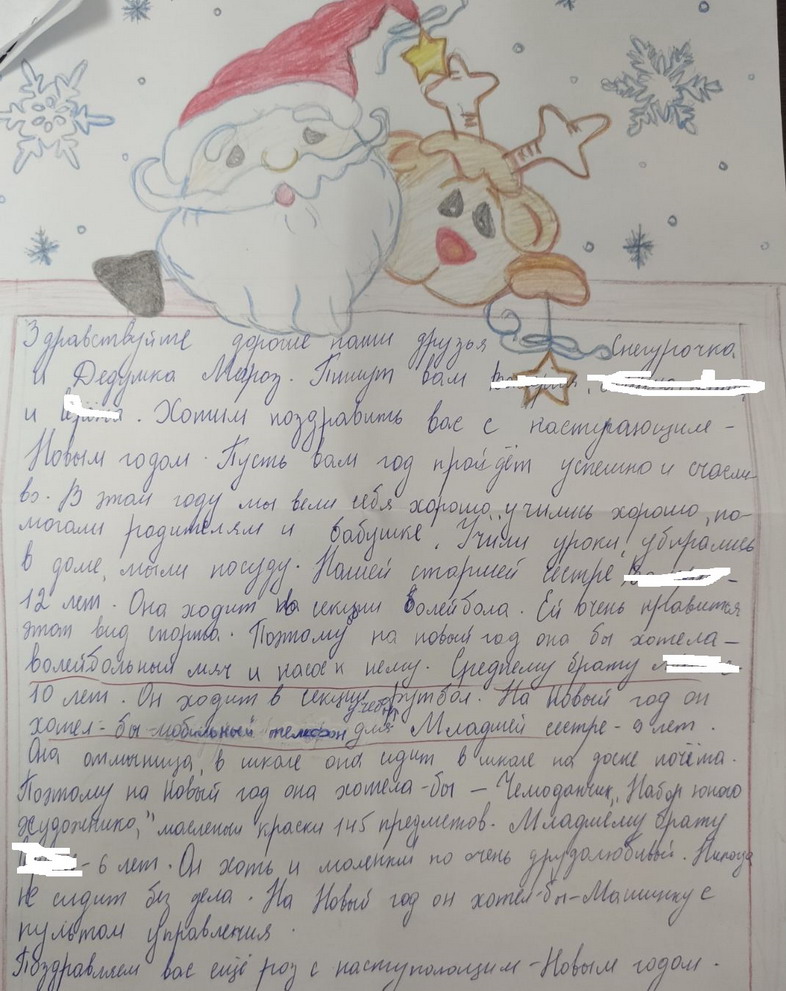 Здравствуйте дорогие наши друзья Снегурочка
и Дедушка Мороз. Пишут вам
и . Хотим поздравить вас с наступающим-
Новым годом. Пусть вам год пройдёт успешно и счасли-
во. В этом году мы вели себя хорошо, учились хорошо, по-
могали родителям и бабушке. Учили уроки, убирались
в доме, мыли посуду. Нашей старшей сестре -
12 лет. Она ходит на секции волейбола. Ей очень нравится
этот вид спорта. Поэтому на новый год она бы хотела-
волейбольный мяч и насос к нему. Среднему брату
10 лет. Он ходит в секцие футбол. На Новый год он
хотел-бы мобильный телефон для учёбы Младшей сестре-9 лет.
Она отличница, в школе она сидит в школе на доске почёта.
Поэтому на Новый год она хотела-бы - Чемоданчик, "Набор юного
художнико," масленыи краски 145 предметов. Младшему брату
- 6 лет. Он хоть и маленкий но очень друдолюбивый. Никогда
не сидит без дела. На Новый год он хотел-бы-Машинку с
пультом управления.
Поздравляем вас ещё роз с наступающим-Новым годом.